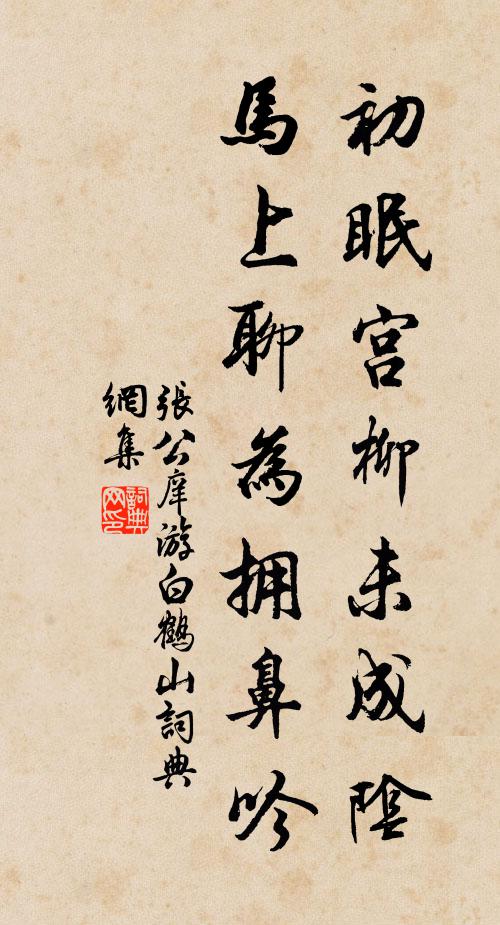 初眠宮柳未成陰
馬上聊為擁鼻吟
張公庠游白鶴山詞典
網集
詞典網印